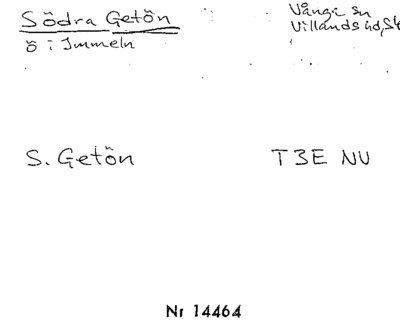 Södra Getön
ö i Immeln
Vånga sn
Villands hd, Sk
S. Getön
T3E NV
Nr 14464